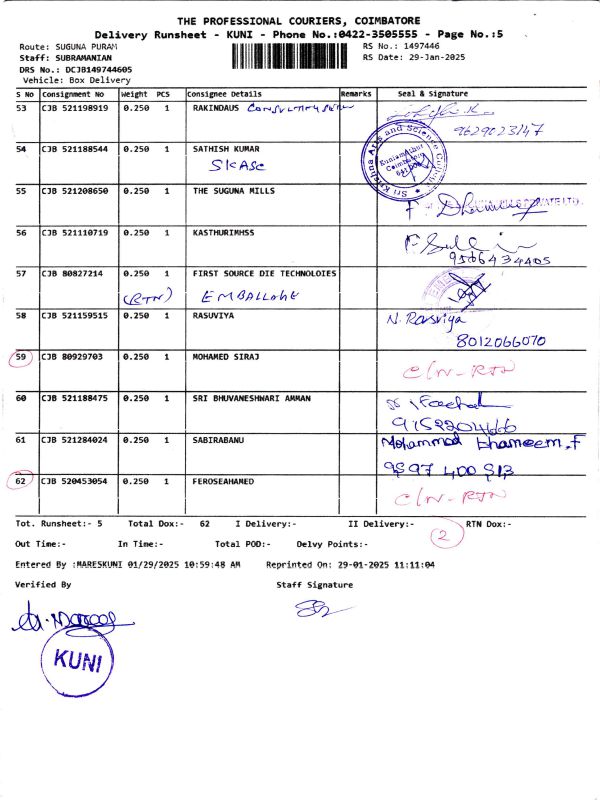 THE PROFESSIONAL COURIERS, COIMBATORE
Delivery Runsheet - KUNI - Phone No.:0422-3505555 - Page No.:5
Route: SUGUNA PURAM
RS No.: 1497446
Staff: SUBRAMANIAN
RS Date: 29-Jan-2025
DRS No.: DCJB149744605
Vehicle: Box Delivery
S No Consignment No Weight PCS Consignee Details Remarks Seal & Signature
53 CJB 521198919 0.250 1 RAKINDAUS
9629023147
54 CJB 521188544 0.250 1 SATHISH KUMAR
SKASC
Sri Krishna Arts and Science College
Kuniamuthur
Coimbatore
641 008
55 CJB 521208650 0.250 1 THE SUGUNA MILLS
56 CJB 521110719 0.250 1 KASTHURIMHSS
9566434405
57 CJB 80827214 0.250 1 FIRST SOURCE DIE TECHNOLOIES
(RTN) EMBALLAGE
58 CJB 521159515 0.250 1 RASUVIYA N. Rasviya
8012066070
59 CJB 80929703 0.250 1 MOHAMED SIRAJ
C/N-RTN
60 CJB 521188475 0.250 1 SRI BHUVANESHWARI AMMAN
9152204666
61 CJB 521284024 0.250 1 SABIRABANU Mohammod thameem.f
9597 400 513
62 CJB 520453054 0.250 1 FEROSEAHAMED
C/N-RTN
Tot. Runsheet:- 5 Total Dox:- 62 I Delivery:- II Delivery:- RTN Dox:-
2
Out Time:- In Time:- Total POD:- Delvy Points:-
Entered By :MARESKUNI 01/29/2025 10:59:48 AM Reprinted On: 29-01-2025 11:11:04
Verified By Staff Signature
KUNI